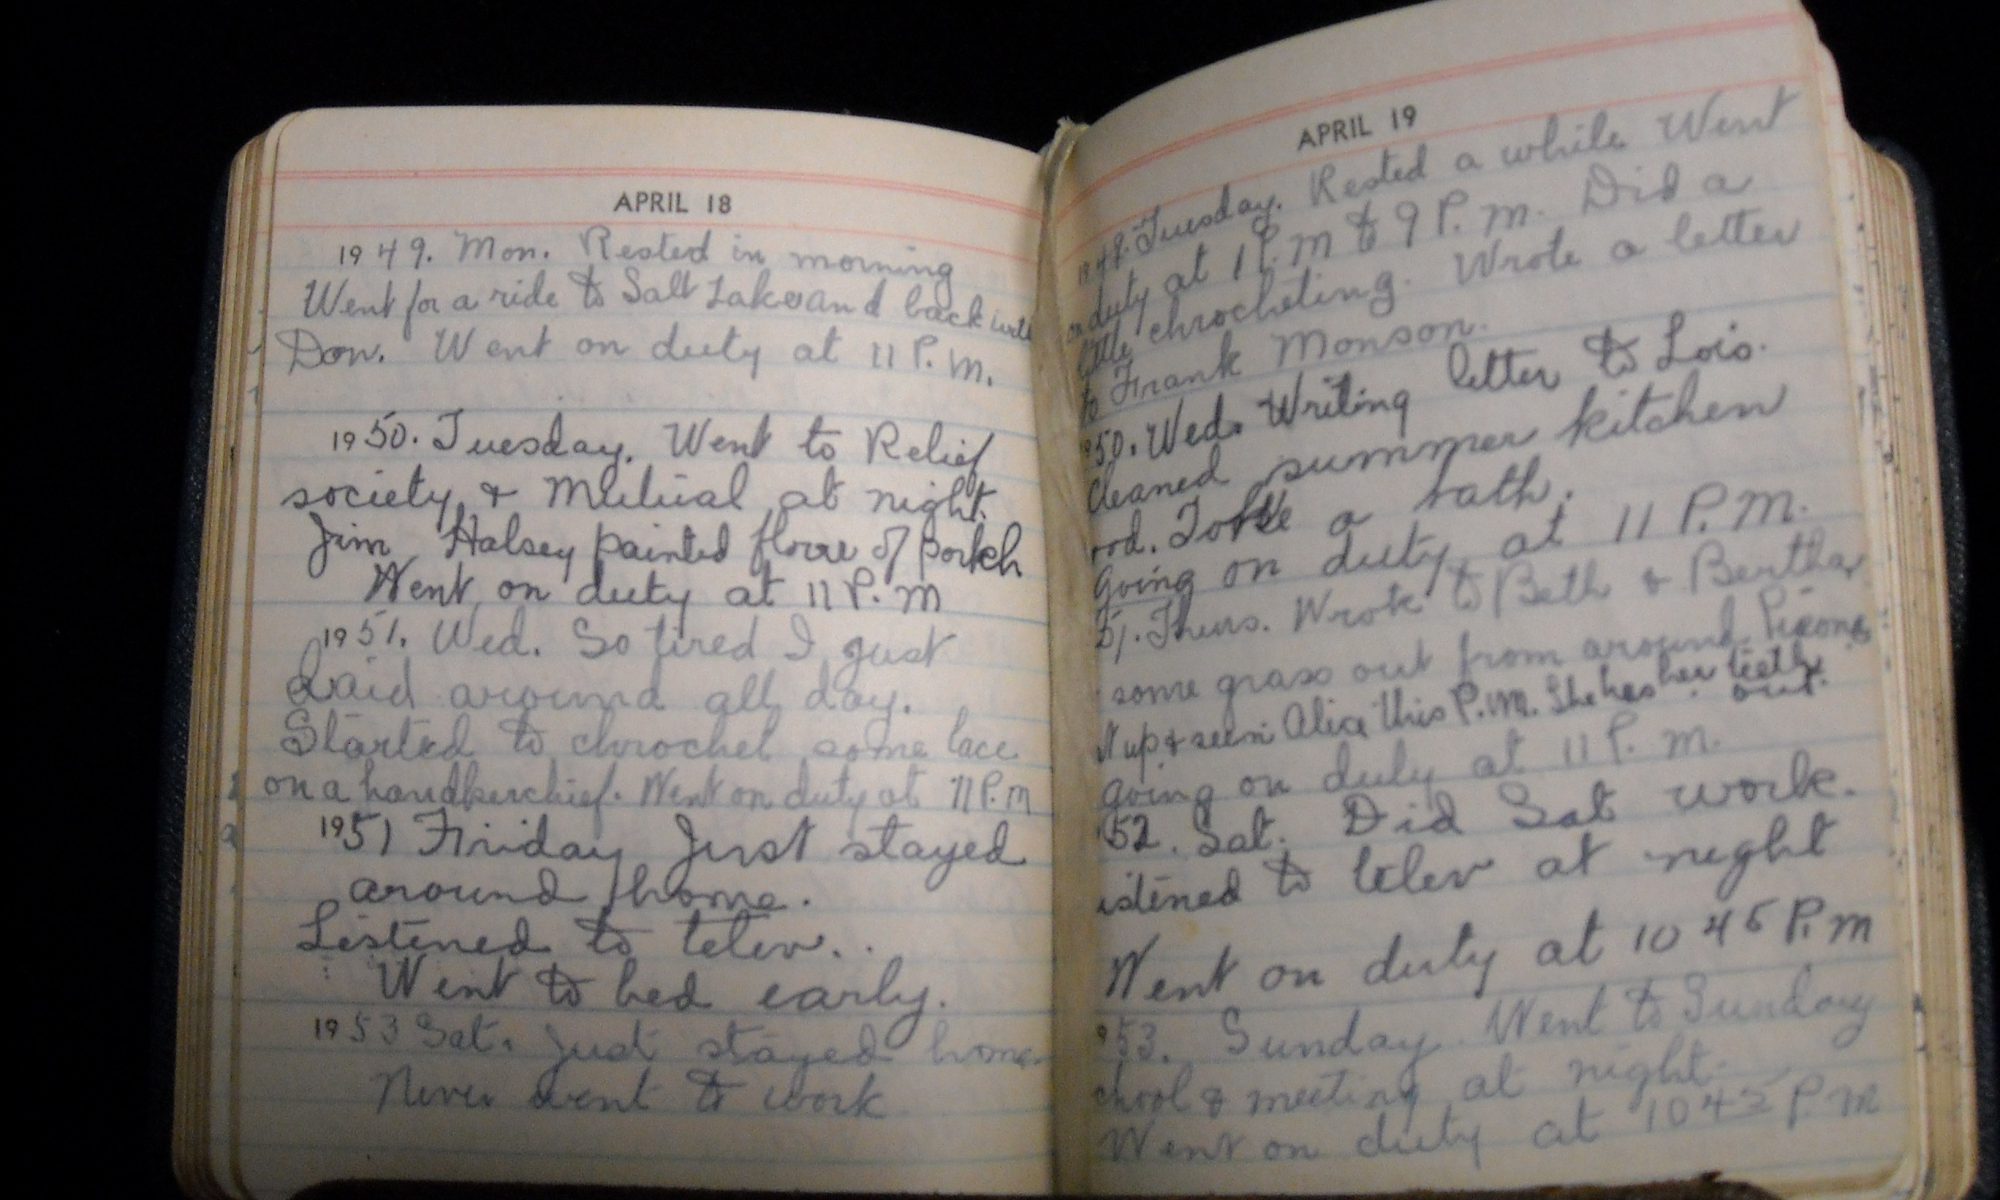 APRIL 18
1949. Mon. Rested in morning
Went for a ride to Salt Lake and back with
Don. Went on duty at 11 P.M.
1950. Tuesday. Went to Relief
society & Mutual at night.
Jim Halsey painted floore of porkch
Went on duty at 11 P.M
1951. Wed. So tired I just
Laid around all day.
Started to chrochet some lace
on a handkerchief. Went on duty at 11 P.M
1951 Friday Just stayed
around home.
Listened to telev..
Went to bed early.
1953 Sat. Just stayed home
Never went to work
APRIL 19
1949. Tuesday. Rested a while Went
on duty at 1 P.M to 9 P.M. Did a
little chrocheting. Wrote a letter
to Frank Monson.
50. Wed. Writing letter to Lois.
Cleaned summer kitchen
ood. Took a bath.
Going on duty at 11 P.M.
51. Thurs. Wrote to Beth & Bertha
some grass out from around
up & seen Alice this P.M. She has her teeth
out.
Going on duty at 11 P.M.
52. Sat. Did Sat work.
istened to telev at night
Went on duty at 10 45 P.M
53. Sunday. Went to Sunday
chool & meeting at night.
Went on duty at 10 45 P.M